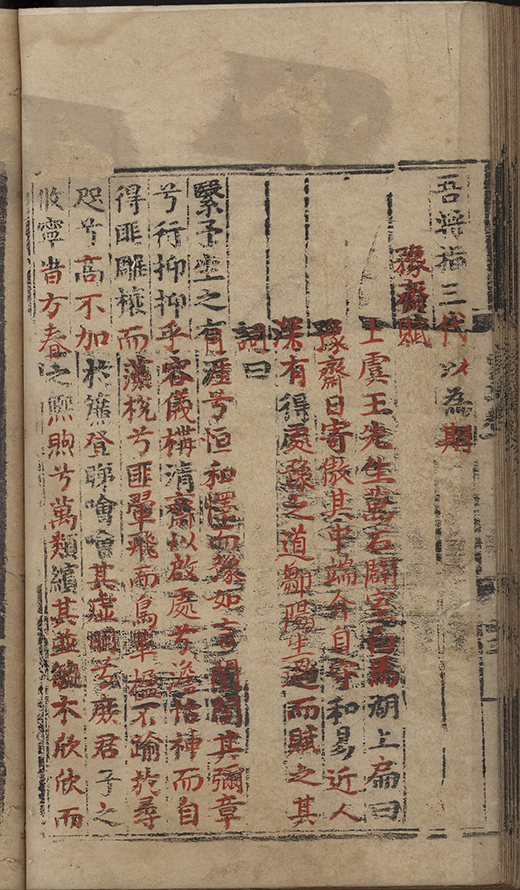 吾將指三代以為期
豫齋賦
上虞王先生萬石闢室白馬湖上扁曰
豫齋日寄傲其中端介自守和易近人
深有得處豫之道鄒陽生過而賦之其
詞曰
繄予生之有涯兮恒和懌而豫如言誾誾其彌章
兮行抑抑乎容儀構清齋以啟處兮澹恬神而自
得匪雕榱而藻梲兮匪翬飛而鳥革楹不踰於尋
咫兮高不加於簾登睇噲噲其虛明兮廄君子之
攸寧當方春之熙煦兮萬類繽其並毓木欣欣而